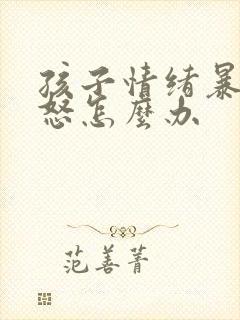 孩子情绪暴
怒怎麼办
范善菁